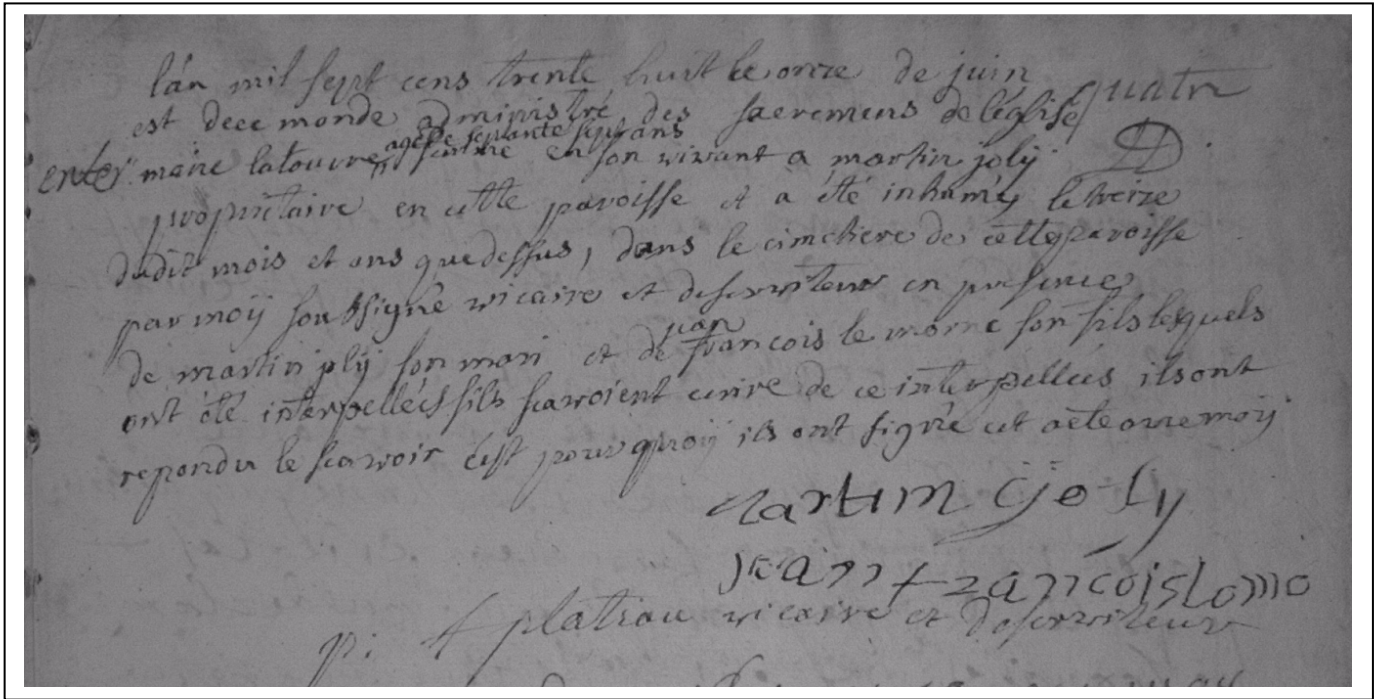 lán mil sept cens trente huit le onze de juin
est decemonde administré des sacremens deléglise
agée de septante sept ans
enter marie latour femme en son vivant a martin joly
propriétaire en cette paroisse et a été inhumé le treize
dudit mois et ans que dessus, dans le cimetiere de cette paroisse
par moÿ soussigné vicaire et deserviteur en presence
jean
de martin joly son mari et de francois le morne son fils lesquels
ont été interpellés s'ils scavoient ecrire de ce interpellés ils ont
repondu le scavoir c'est pourquoÿ ils ont signé cet acte avec moÿ
Martin joly
jean francois lomo
p: platiau vicaire et deserviteur